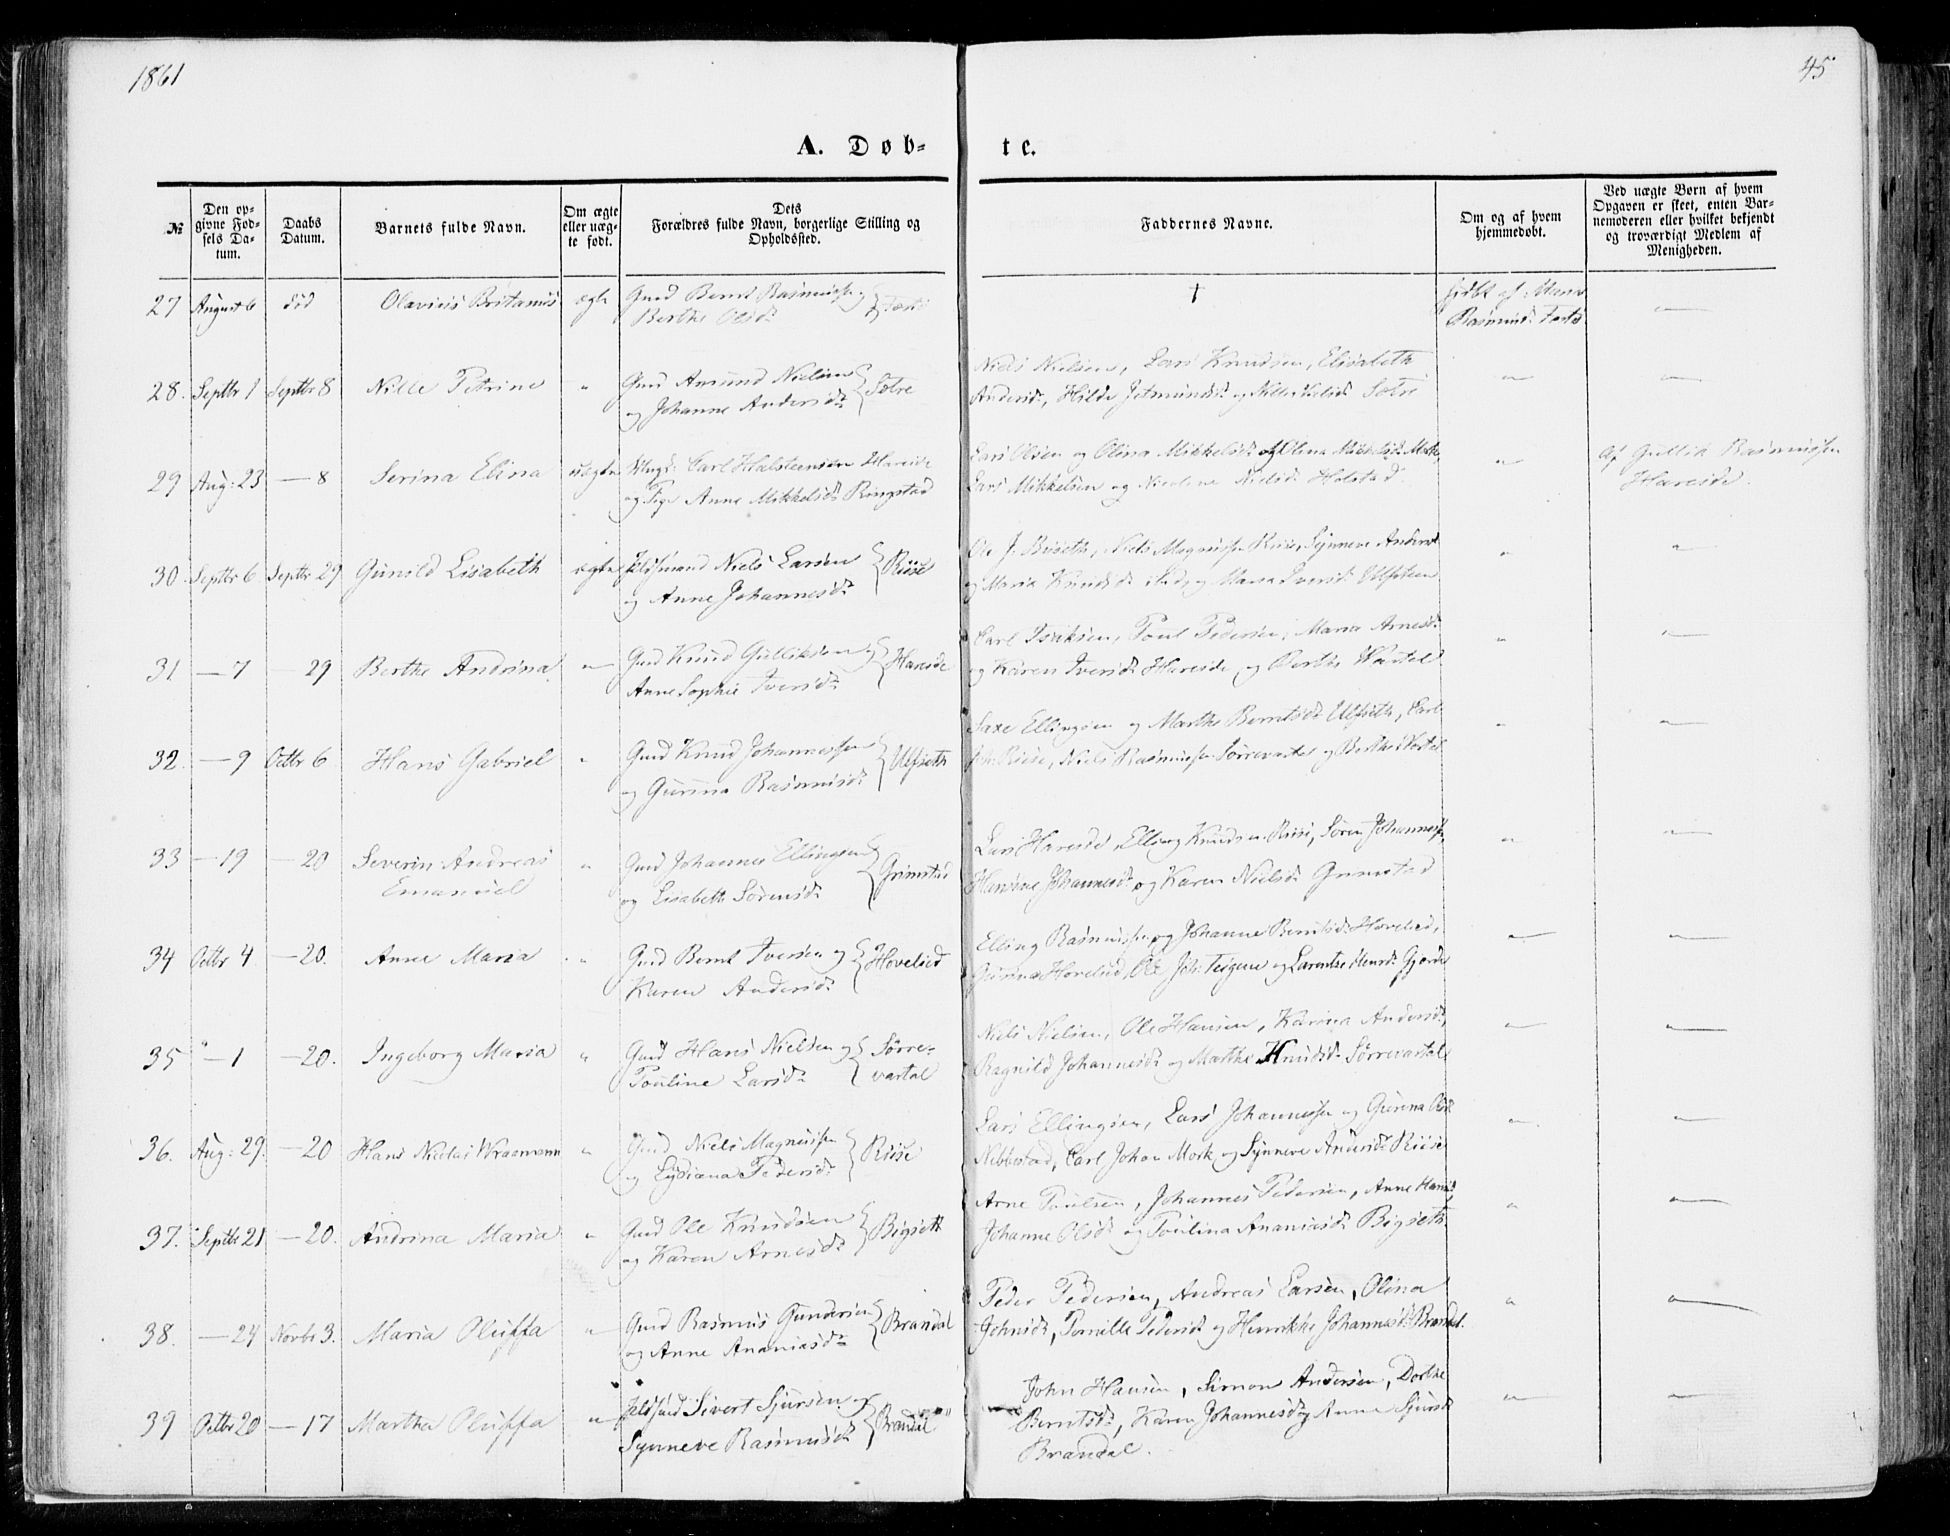 1861
45
A. Døb-
te.
№
Den op-
givne Fød-
sels Da-
tum.
Daabs
Datum.
Barnets fulde Navn.
Om ægte
eller uæg-
te født.
Dets
Forældres fulde Navn, borgerlige Stilling og
Opholdssted.
Faddernes Navne.
Om og af hvem
hjemmedøbt.
Ved uægte Børn af hvem
Opgaven er skeet, enten Bar-
nemoderen eller hvilket bekjendt
og troværdigt Medlem af
Menigheden.
27 August 6 død Olavius Britanus ægte Gmd Bernt Rasmussen og
Berthe Olsd.
†
hjdbt af Maren
Rasmusd.
—
28. Septbr 1 Septbr 8 Nille Petrine " Gmd Amund Nielsen
og Johanne Andersd. } Sætre
Niels Nielsen, Lars Knudsen, Elisabeth
Andersd., Hilde Jetmundsd. og Nille Nielsd. Sætre
" —
29 Aug: 23 — 8 Serina Elina uægte Ungk: Carl Halsteensen Hareide
og Pige Anne Mikkelsd. Ringstad
Lars Olsen og Olina Mikkelsd. og Olina Mikkelsd. Mork,
Lars Mikkelsen og Nicoline Nielsd. Holstad.
" Af Gullik Rasmussen
Hareide.
30. Septbr 6 Septbr 29 Gunild Lisabeth ægte Niels Larsen
og Anne Johannesd. } Riise
Ole J. Niels Magnussen Riise, Synneve Andersd.
og Maria Knudsd. og Maria Iversd. Ulfsteen
" "
31 — 7 — 29 Berthe Andrina " Gmd Knud Gulliksen og
Anne Sophie Iversd. } Hareide
Carl Isaksen, Poul Pedersen, Maria Arnesd.
og Karen Iversd. Hareide og Berthe Vartdal
" —
32. — 9 Octbr 6 Hans Gabriel " Gmd Knud Johannessen
og Gurina Rasmusd. } Ulfseth
Saxe Ellingsen og Marthe Berntsd. Ulfseth, Carl
Joh. Riise, Niels Rasmussen Sørrevartal og Berthe Vartdal
" —
33 — 19 — 20 Severin Andreas
Emanuel " Gmd Johannes Ellingsen
og Lisabeth Sørensd. } Grimstad
Lars Hareide, Elling Knudsen Riise, Søren Johannessen,
Hansine Johannesd. og Karen Nielsd. Grimstad
" —
34 Octbr 4 — 20. Anne Maria " Gmd Bernt Iversen og
Karen Andersd. } Hovelied
Elling Rasmussen og Johanne Berntsd. Hovelied,
Gurina Hovelied, Ole Joh: Teigene og Larentze Gjerde
— —
35 " — 1 — 20. Ingeborg Maria " Gmd Hans Nielsen og
Pouline Larsd. } Sørre-
vartal
Niels Nielsen, Ole Hansen, Karina Andersd.,
Ragnild Johannesd. og Marthe Knudsd. Sørrevartal
— —
36. Aug: 29. — 20 Hans Nicolai Wraamann " Gmd Niels Magnussen
og Lydiana Pedersd. } Riise
Lars Ellingsen, Lars Johannessen og Gurina Olsd.
Nebbestad, Carl Johan Mork og Synneve Andersd. Riise
" —
37. Septbr 21 — 20. Andrina Maria " Gmd Ole Knudsen
og Karen Arnesd. } Bigseth
Arne Poulsen, Johannes Pedersen, Anne Hansd.,
Johanne Olsd. og Poulina Ananiasd. Bigseth
" —
38. — 24 Novbr 3. Maria Oluffa " Gmd Rasmus Gundersen
og Anne Ananiasd. } Brandal
Peder Pedersen, Andreas Larsen, Olina
Johnsd., Pernille Pedersd. og Henrikke Johannesd. Brandal.
" —
39 Octbr 20 — 17 Martha Oluffa " Sivert Sjursen og
Synneve Rasmusd. } Brandal
John Hansen, Simon Andersen, Dorthe
Berntsd., Karen Johannesd. og Anne Sjursd.
Brandal.
— —